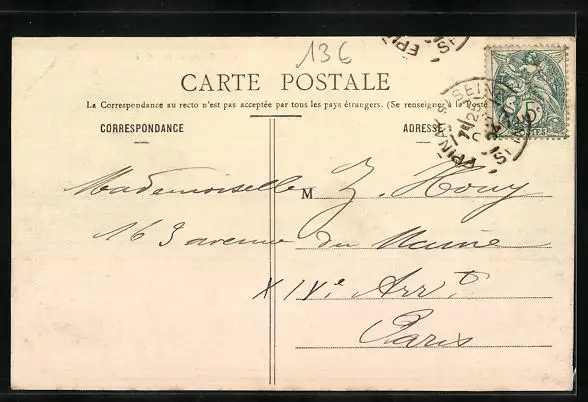 136
CARTE POSTALE
La Correspondance au recto n'est pas acceptée par tous les pays étrangers. (Se renseigner à la Poste
CORRESPONDANCE
ADRESSE
EPINAY S. SEINE
5c
POSTES
Mademoiselle M Z. Houy
163 avenue du Maine
XIVe Arrt
Paris